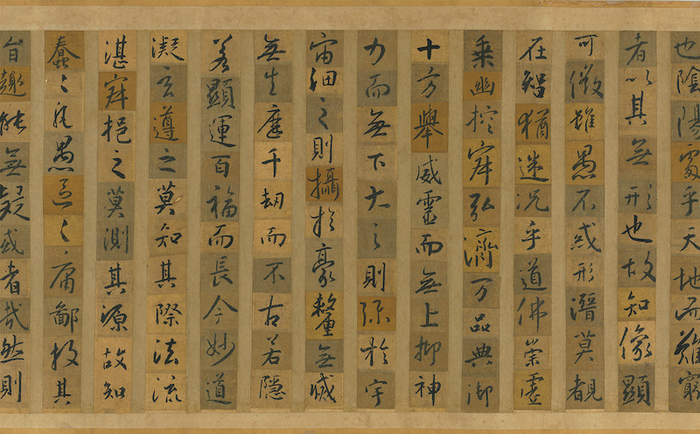 也陰陽處乎天地而難窮
者以其無形也故知像顯
可徵雖愚不惑形潛莫覩
在智猶迷况乎道佛崇虛
乘幽控寂弘濟万品典御
十方舉威靈而無上抑神
力而無下大之則弥於宇
宙細之則攝於豪釐無滅
無生歷千劫而不古若隱
若顯運百福而長今妙道
凝玄遵之莫知其際法流
湛寂挹之莫測其源故知
蠢〻凡愚區〻庸鄙投其
旨趣能無疑惑者哉然則